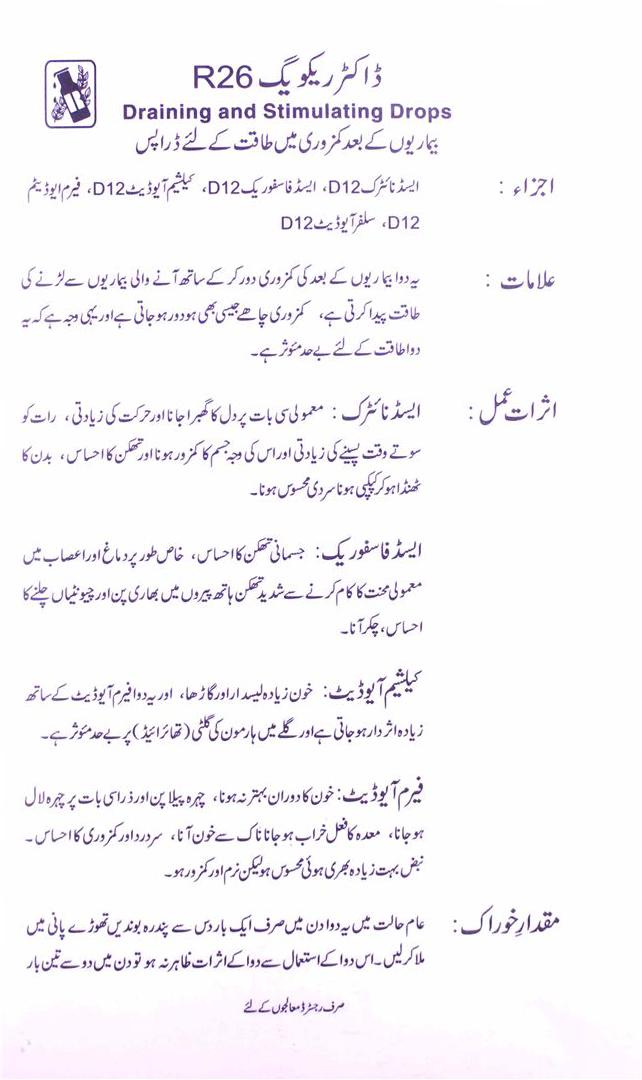 ڈاکٹر ریکویگ R26
Draining and Stimulating Drops
بیماریوں کے بعد کمزوری میں طاقت کے لئے ڈراپس
اجزاء : ایسڈ نائٹرک D12، ایسڈ فاسفوریک D12، کیلشیم آیوڈیٹ D12، فیرم ایوڈیٹم
D12، سلفر آیوڈیٹ D12
علامات : یہ دوا بیماریوں کے بعد کی کمزوری دور کر کے ساتھ آنے والی بیماریوں سے لڑنے کی
طاقت پیدا کرتی ہے، کمزوری چاھے جیسی بھی ہو دور ہو جاتی ہے اور یہی وجہ ہے کہ یہ
دوا طاقت کے لئے بے حد مئوثر ہے۔
اثرات عمل : ایسڈ نائٹرک : معمولی سی بات پر دل کا گھبرا جانا اور حرکت کی زیادتی ، رات کو
سوتے وقت پسینے کی زیادتی اور اس کی وجہ جسم کا کمزور ہونا اور تھکن کا احساس ، بدن کا
ٹھنڈا ہو کر کپکپی ہونا سردی محسوس ہونا۔
ایسڈ فاسفوریک : جسمانی تھکن کا احساس، خاص طور پر دماغ اور اعصاب میں
معمولی محنت کا کام کرنے سے شدید تھکن ہاتھ پیروں میں بھاری پن اور چیونٹیاں چلنے کا
احساس ، چکر آنا۔
کیلشیم آیوڈیٹ : خون زیادہ لیسدار اور گاڑھا، اور یہ دوا فیرم آیوڈیٹ کے ساتھ
زیادہ اثر دار ہو جاتی ہے اور گلے میں ہارمون کی گلٹی (تھائرائیڈ) پر بے حد مئوثر ہے۔
فیرم آیوڈیٹ : خون کا دوران بہتر نہ ہونا، چہرہ پیلا پن اور ذراسی بات پر چہرہ لال
ہو جانا، معدہ کا فعل خراب ہو جانا ناک سے خون آنا، سردرد اور کمزوری کا احساس ۔
نبض بہت زیادہ بھری ہوئی محسوس ہو لیکن نرم اور کمزور ہو۔
مقدارِ خوراک : عام حالت میں یہ دوا دن میں صرف ایک بار دس سے پندرہ بوندیں تھوڑے پانی میں
ملا کر لیں ۔ اس دوا کے استعمال سے دوا کے اثرات ظاہر نہ ہو تو دن میں دو سے تین بار
صرف رجسٹرڈ معالجوں کے لئے